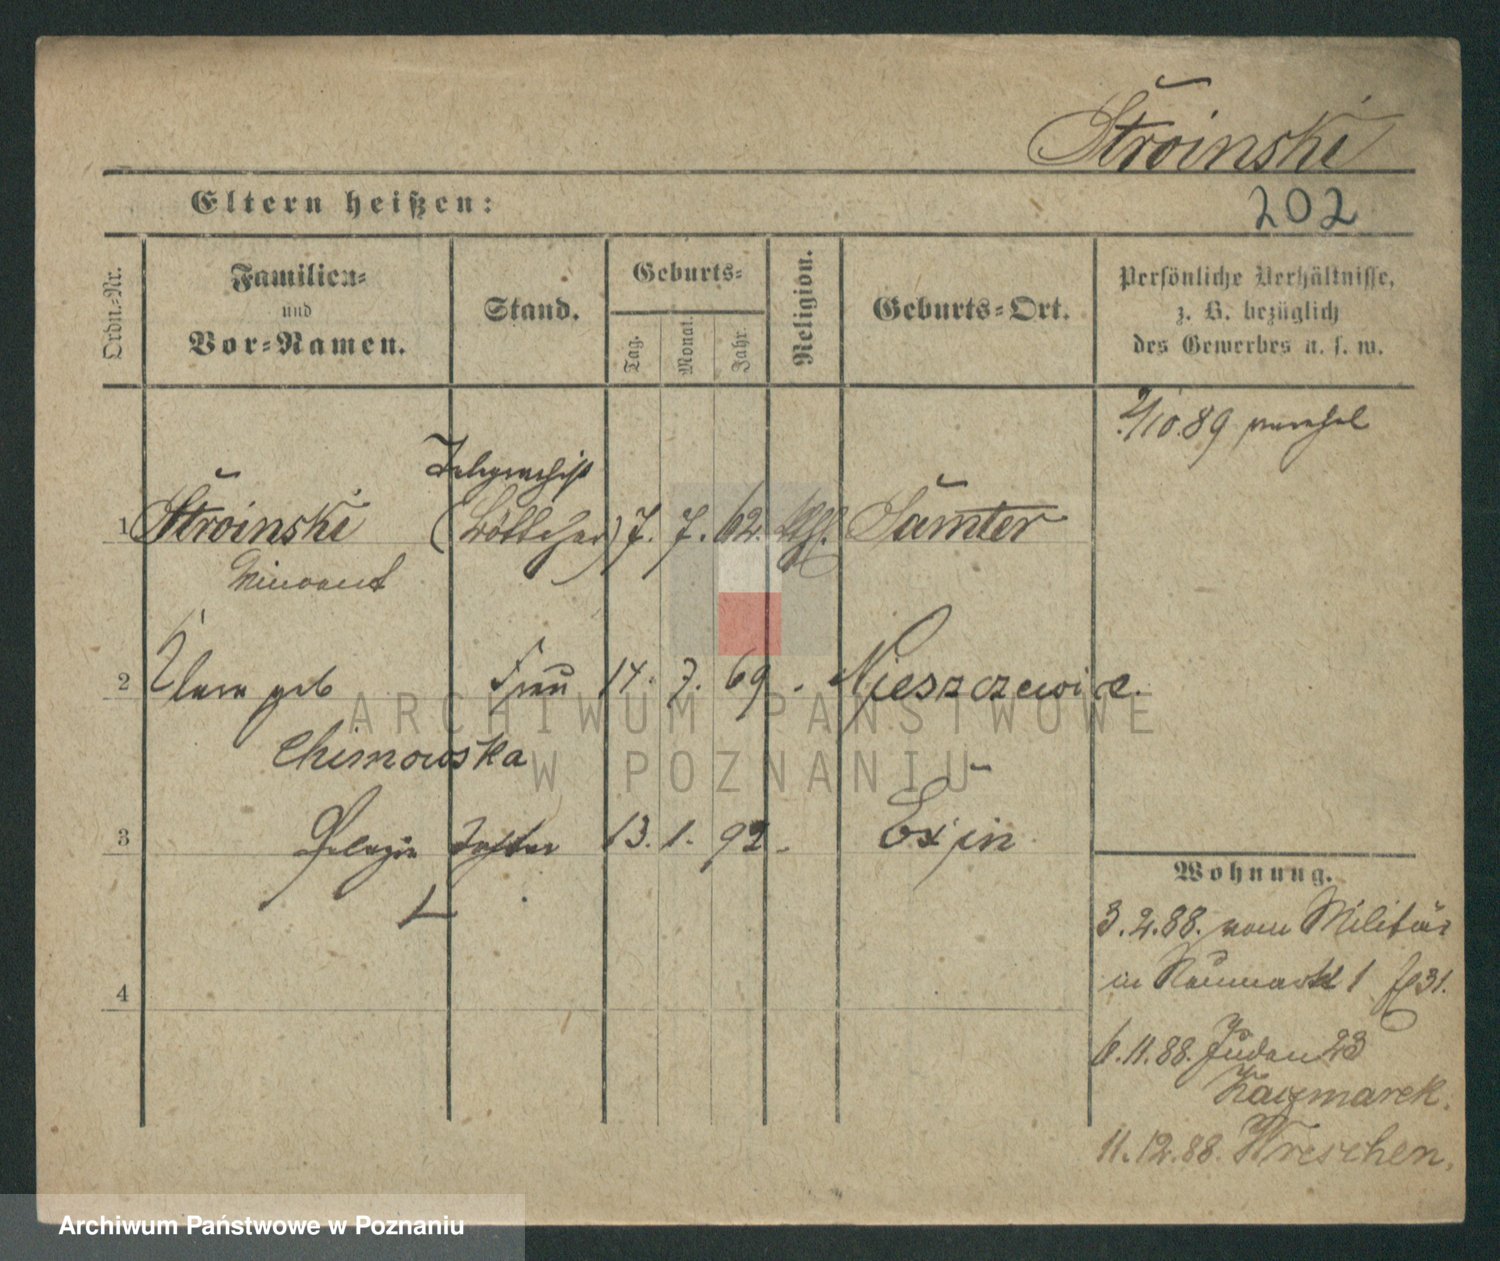 Stroinski
202
Eltern heißen:
Ordn.-Nr.
Familien-
und
Vor-Namen.
Stand.
Geburts-
Tag.
Monat.
Jahr.
Religion.
Geburts-Ort.
Persönliche Verhältnisse,
z. B. bezüglich
des Gewerbes u. s. w.
2/10.89
Telegraphist
1 Stroinski (Böttcher) 7. 7. 62. kth. Samter
Vincent
2 Clara geb Frau 14. 7. 69 - Nieszczewice.
Chimowska
3 Pelagia Tochter 13. 1. 92 - Exin
4
Wohnung.
3.2.88. vom Militär
in Neumarkt 1 31.
6.11.88. Juden 23
Kaczmarek.
11.12.88. Wreschen.
ARCHIWUM PAŃSTWOWE
W POZNANIU
Archiwum Państwowe w Poznaniu